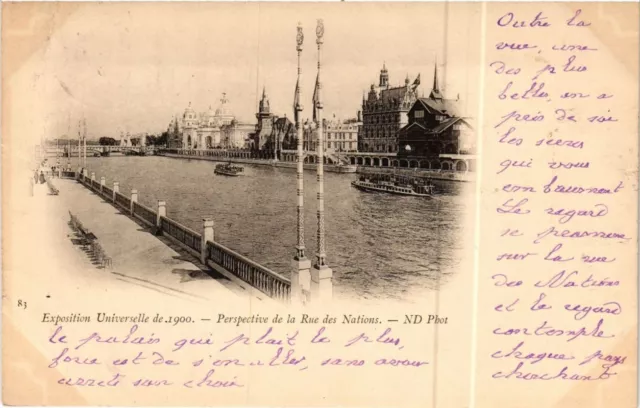 Outre la
vue, une
des plus
belles, on a
près de soi
les serres
qui vous
embaument
Le regard
se promène
sur la rue
des Nations
et le regard
contemple
chaque pays
cherchant
83
Exposition Universelle de 1900. — Perspective de la Rue des Nations. — ND Phot
le palais qui plait le plus,
force est de s'en aller, sans avoir
arrêté son choix